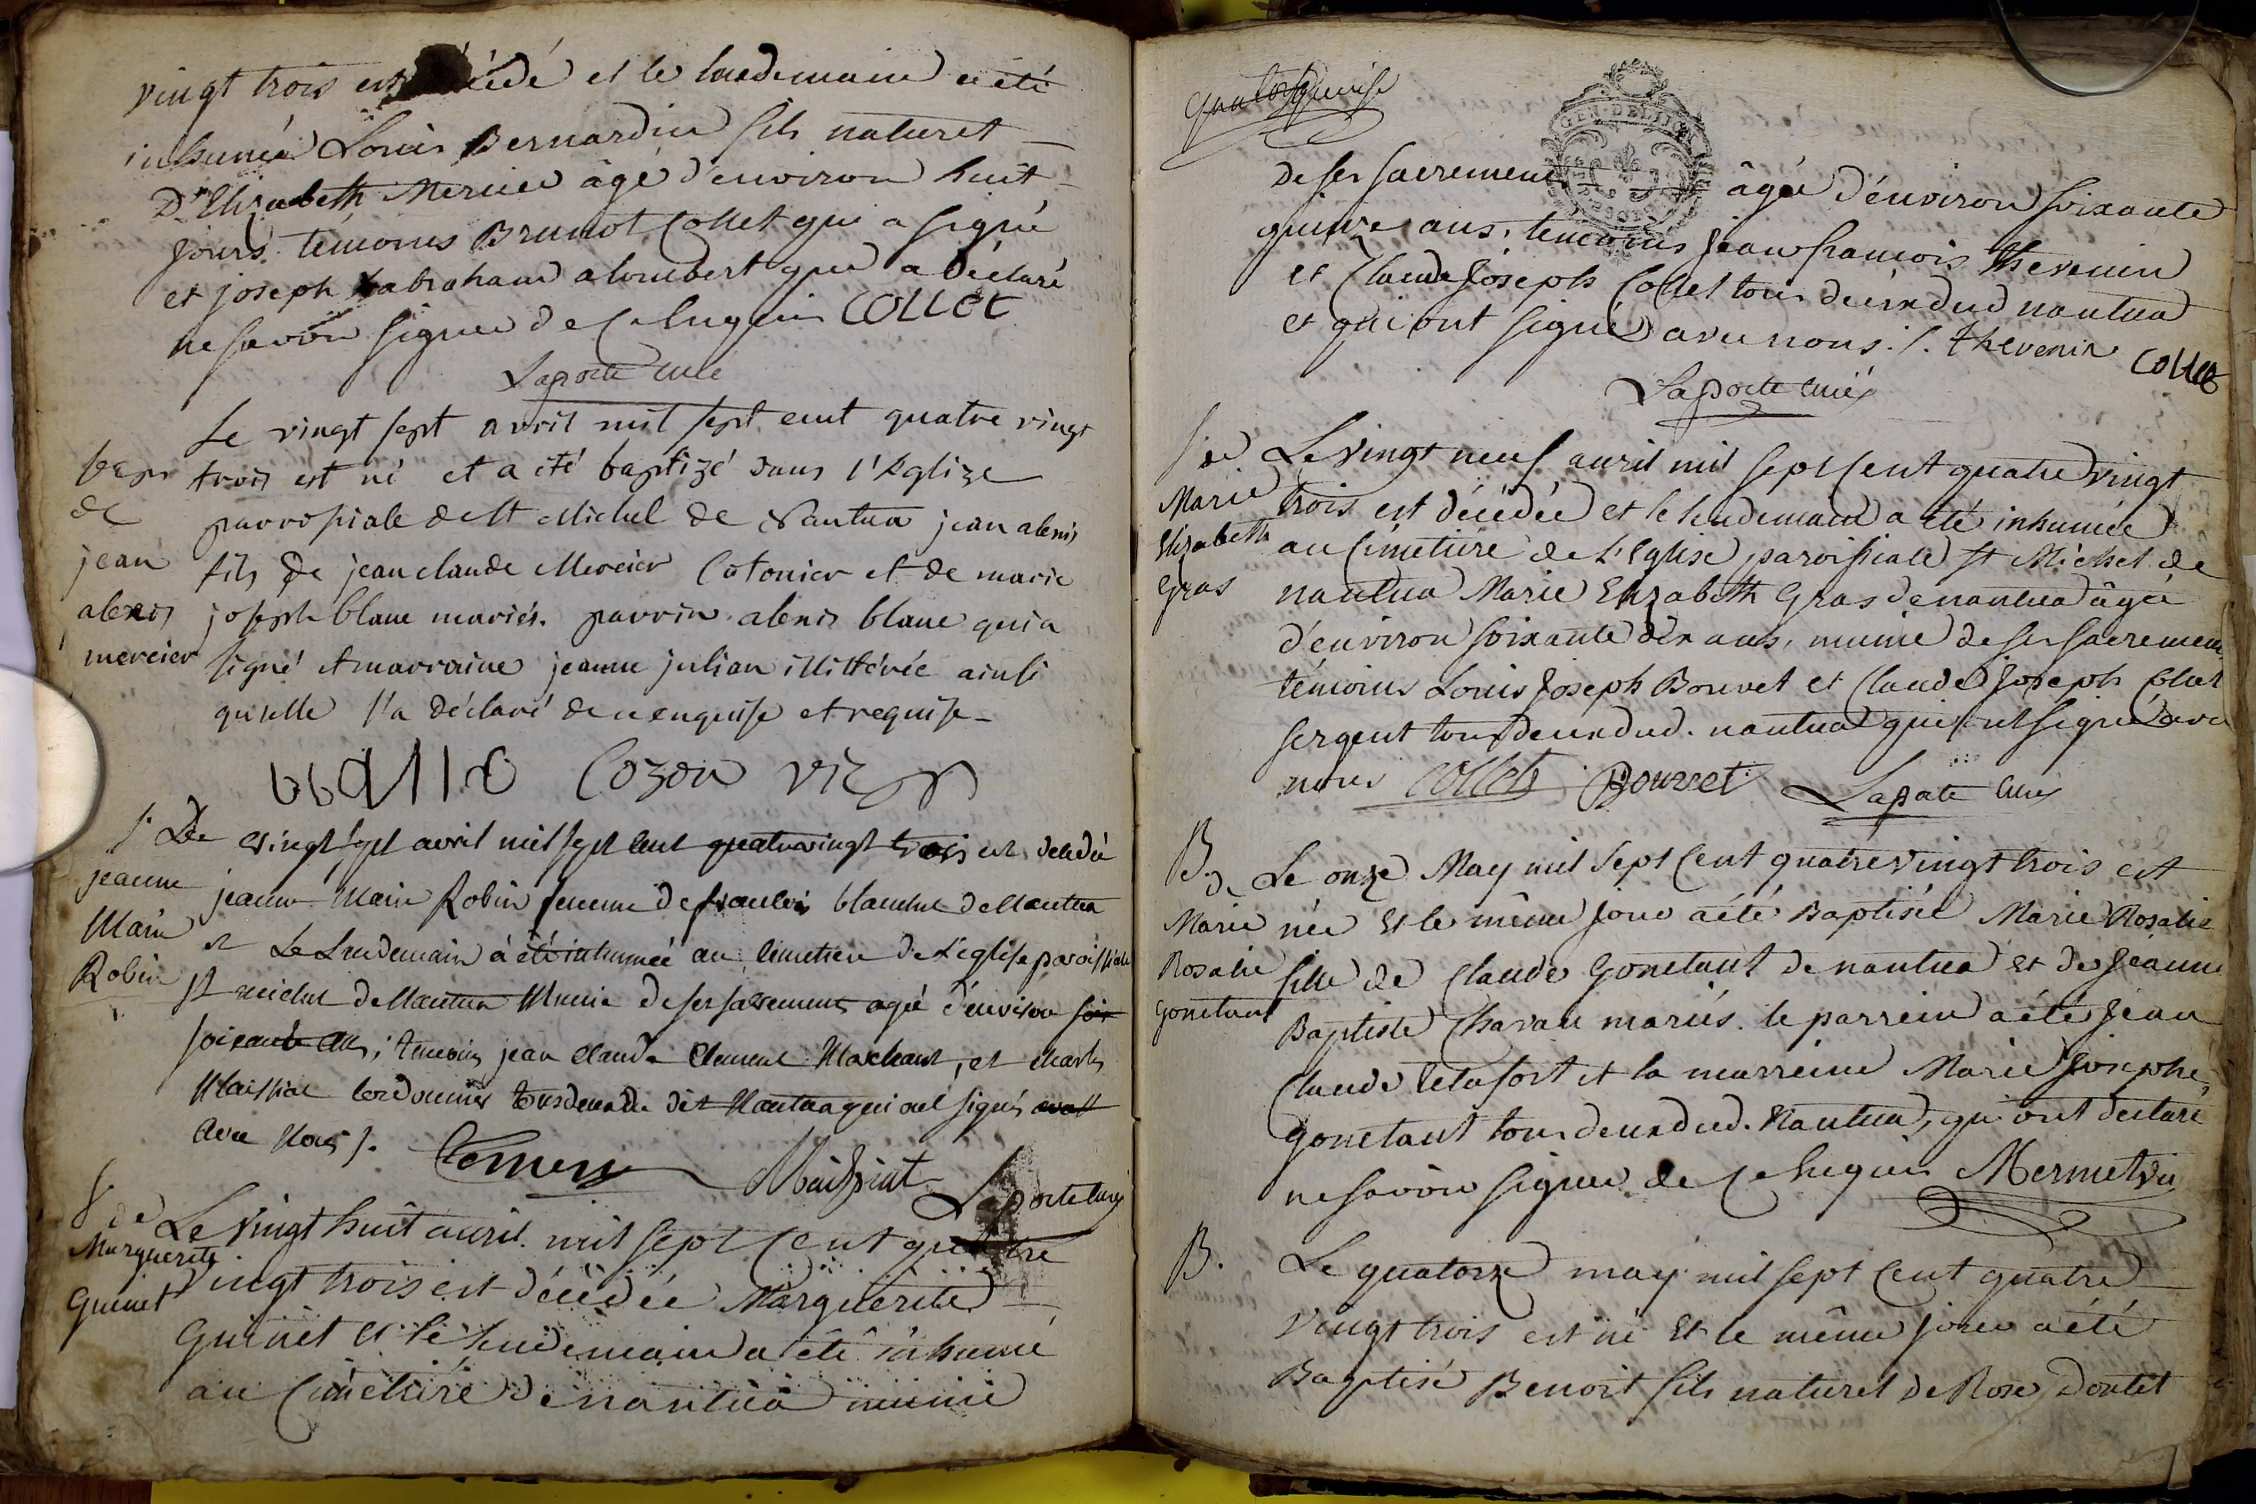 vingt trois est décédé et le lendemain a été
inhumé Louis Bernardin fils naturel
D'Elizabeth Mercier âgé d'environ huit
jours. témoins Brunot Collet qui a signé
et joseph abraham alombert qui a déclaré
ne savoir signer de ce enquis COLLET
Laporte curé
Le vingt sept avril mil sept cent quatre vingt
trois est né et a été baptizé dans l'Eglize
parrossiale de St Michel de Nantua jean alexis
fils de jean claude Mercier Cotonier et de marie
joseph blanc mariés. parrin alexis blanc qui a
signé et marraine jeanne julian illittérée ainsi
qu'elle l'a déclaré de ce enquise et requise
Cozon vic
bap
de
jean
alexis
mercier
vingt sept avril mil sept cent quatrevingt trois est decedée
jeanne Marie Robin femme de francois de Nantua
et Le Lendemain à été inhumée au cimetiere de L'eglise paroissiale
St michel de Nantua Munie de ses sacrements agée d'environ soix
soixante ans; temoins jean claude Clement Marchant, et charles
Maissiat cordonnier tous deux du dit Nantua qui ont signés avec
avec Nous /.
Maissiat Laporte curé
S. De
jeanne
Marie
Robin
Le Vingt huit avril mil sept cent quatre
vingt trois est décédée Marguerite
Guinet et le lendemain a été inhumé
au Cimetiére de nantua munie
S. de
Marguerite
Guinet
de ses sacrements âgée d'environ soixante
quinze ans, temoins jean francois Thevenin
et Claude Joseph Collet tous deux dud nantua
et qui ont signé avec nous. /. Thevenin COLLET
Laporte curé
Le Vingt neuf avril mil sept Cent quatre vingt
trois est décédée et le lendemain a été inhumée
au Cimetiere de L'Eglise paroissiale St Michel de
nantua Marie Elizabeth Gras de nantua âgée
d'environ soixante dix ans, munie de ses sacremens
témoins Louis Joseph Bouvet et Claude Joseph Collet
sergent tous deux dud. nantua qui ont signé avec
nous Collet Bouvet Laporte curé
S. de
Marie
Elizabeth
Gras
Le onze May mil sept Cent quatre vingt trois est
née Et le même jour a été Baptisée Marie Rosalie
fille de Claude Gonetant de nantua et de Jeanne
Baptiste Chavan mariés. le parrein a été Jean
Claude et la marreine Marie Josephe
gonetant tous deux dud. Nantua, qui ont déclaré
ne savoir signer de ce enquis Mermet vic
B. de
Marie
Rosalie
gonetant
B.
Le quatorze may mil sept Cent quatre
vingt trois est né Et le même jour a été
Baptisé Benoit fils naturel de Rose